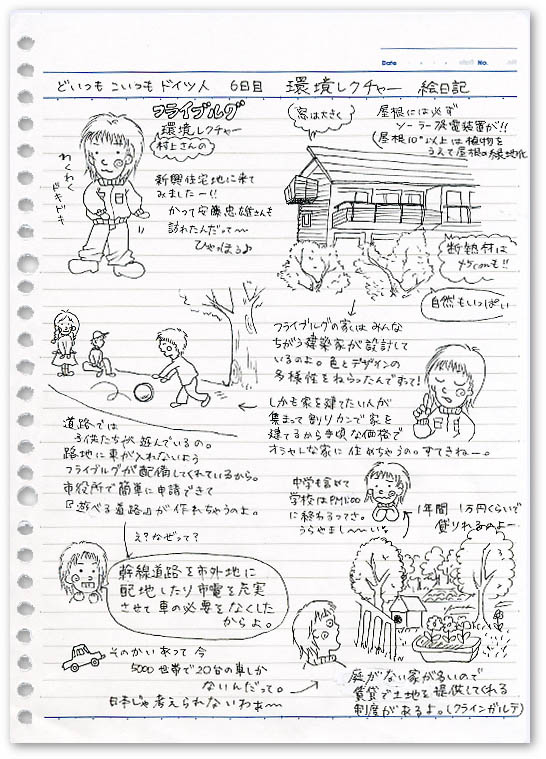 Date
No.
どいつもこいつもドイツ人 6日目 環境レクチャー 絵日記
フライブルグ
環境レクチャー
村上さんの
わくわく
ドキドキ
新興住宅地に来て
みましたー!!
かつて安藤忠雄さんも
訪れた人だって〜
ひゃっほう♪
窓は大きく
屋根には必ず
ソーラー発電装置が!!
(屋根10°以上は植物を
うえて屋根の緑地化
断熱材は
45cmも!!
自然もいっぱい
フライブルグの家はみんな
ちがう建築家が設計して
いるのよ。色とデザインの
多様性をねらったんですって!
しかも家を建てたい人が
集まって割りカンで家を
建てるから手頃な価格で
オシャレな家に住めちゃうの。すてきねー。
道路では
子供たちが遊んでいるの。
路地に車が入れないよう
フライブルグが配備してくれているから。
市役所で簡単に申請できて
『遊べる道路』が作れちゃうのよ。
え?なぜって?
幹線道路を市外地に
配地したり市電を充実
させて車の必要をなくした
からよ。
そのかいあって今
5000世帯で20台の車しか
ないんだって。
日本じゃ考えられないわぁ〜
中学も含めて
学校はPM1:00
に終わるってさ。
うらやまし〜いな
1年間 1万円くらいで
貸りれるのよー
庭がない家が多いので
賃貸で土地を提供してくれる
制度があるよ。(クラインガルテ)